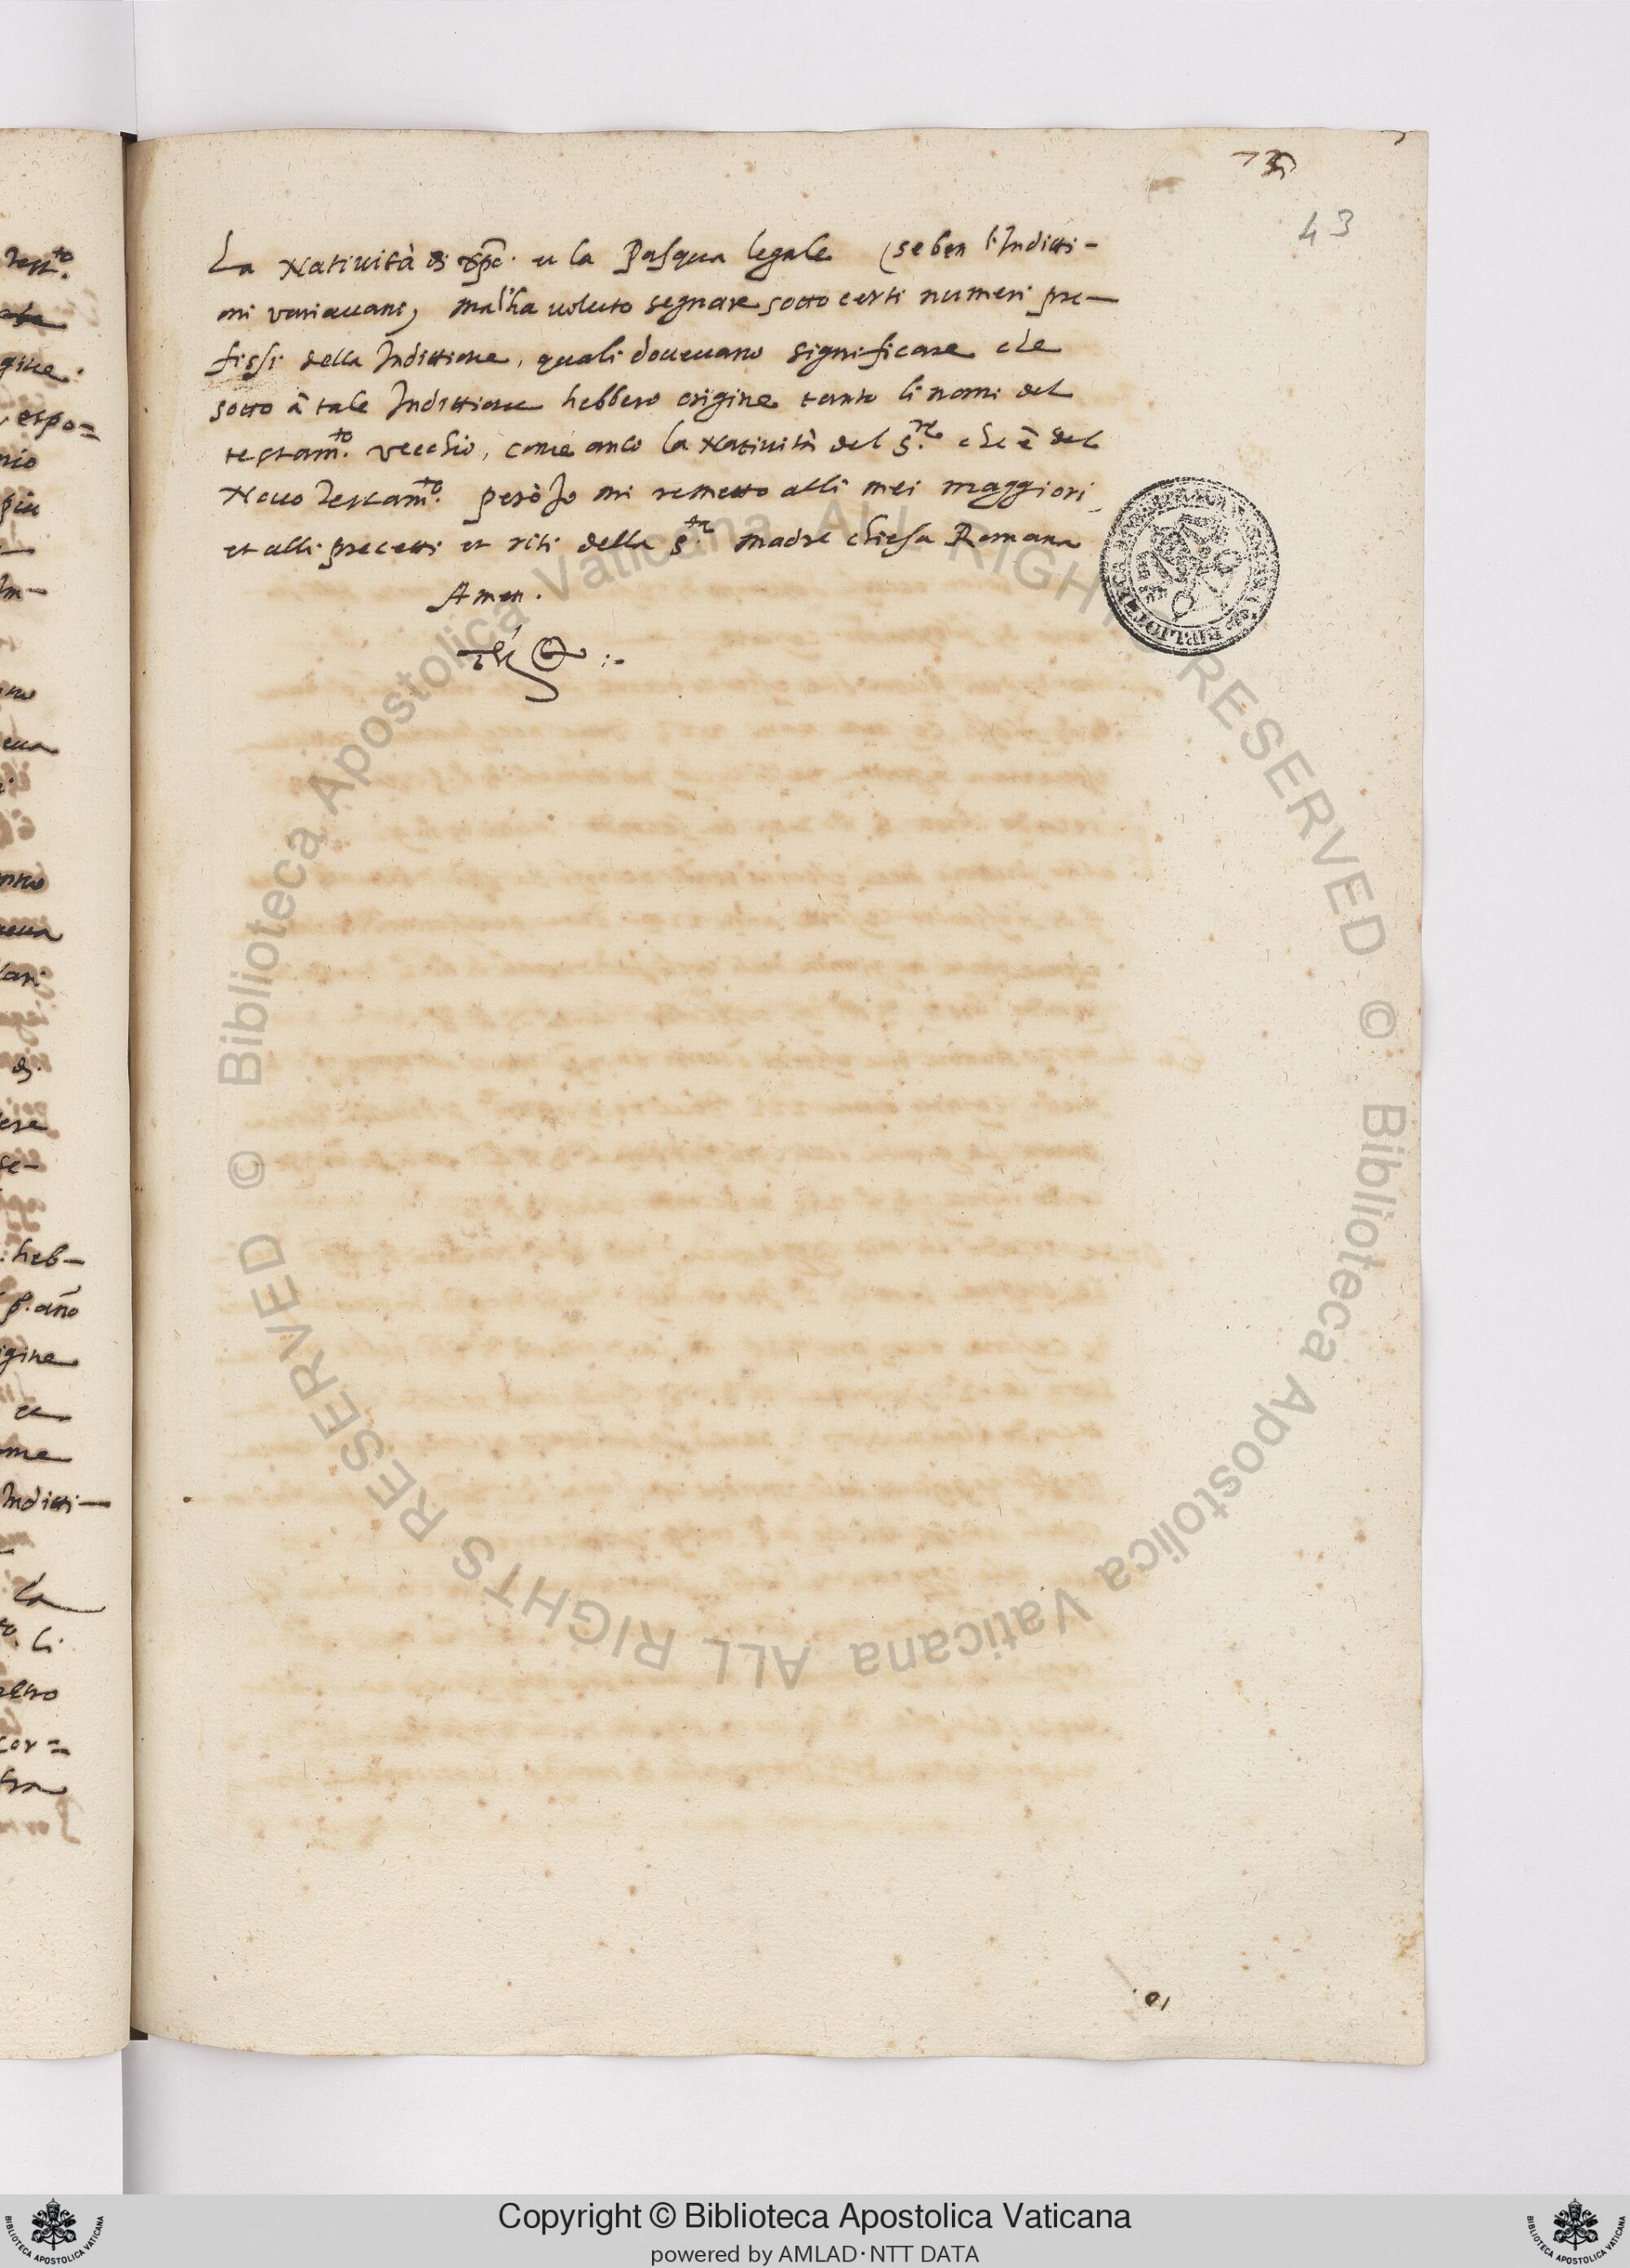 43
La Natività di xpo. et la Pasqua legale (se ben l'Inditti-
oni variauano, ma l'ha voluto segnare sotto certi numeri pre-
fissi della Indittione, quali doueuano significare che
sotto à tale Indittione hebbero origine tanto li nomi del
testam.to vecchio, come anco la Natività del S.re che è del
Nouo Testam.to. però Io mi remetto alli mei maggiori
et alli precetti et riti della S.ta madre chiesa Romana
Amen.
Copyright © Biblioteca Apostolica Vaticana
powered by AMLAD·NTT DATA
© Biblioteca Apostolica Vaticana ALL RIGHTS RESERVED © Biblioteca Apostolica Vaticana ALL RIGHTS RESERVED